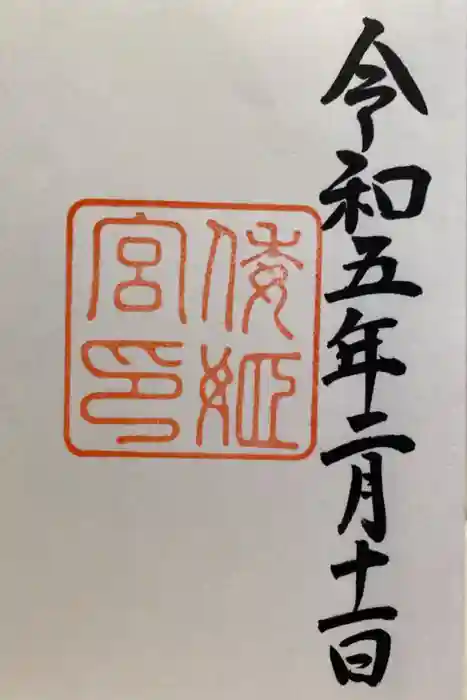 令和五年二月十一日
倭姫
宮印